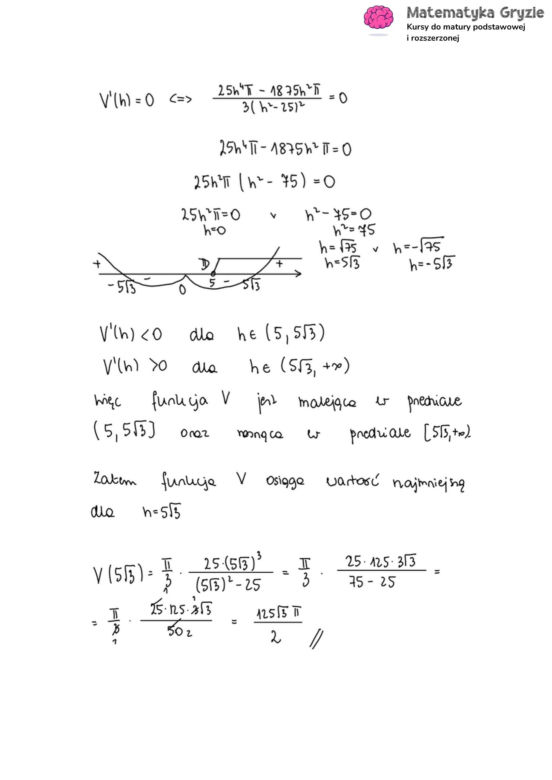 Matematyka Gryzie
Kursy do matury podstawowej
i rozszerzonej
V'(h) = 0 <=> (25h⁴π - 1875h²π)/(3(h²-25)²) = 0
25h⁴π - 1875h²π = 0
25h²π (h² - 75) = 0
25h²π = 0 v h² - 75 = 0
h = 0 h² = 75
h = √75 v h = -√75
h = 5√3 h = -5√3
+ - D - +
-5√3 0 5 5√3
V'(h) < 0 dla h ∈ (5, 5√3)
V'(h) > 0 dla h ∈ (5√3, +∞)
więc funkcja V jest malejąca w przedziale
(5, 5√3] oraz rosnąca w przedziale [5√3, +∞)
Zatem funkcja V osiąga wartość najmniejszą
dla h = 5√3
V(5√3) = π/3 · (25·(5√3)³)/((5√3)² - 25) = π/3 · (25·125·3√3)/(75 - 25) =
= π/3 · (25·125·3√3)/50 = (125√3 π)/2 //